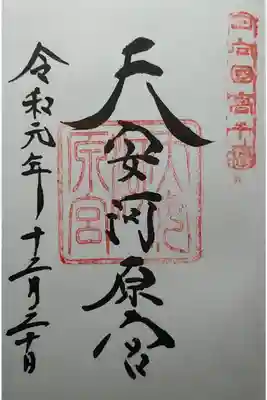 日向國高千穂
天安河原宮
天安河原宮
令和元年十二月二十日